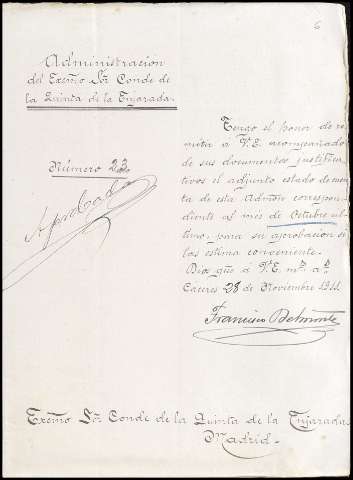 6
Administración
del Exsmo Sr. Conde de
la Quinta de la Enjarada.
Número 23.
Aprobada
Tengo el honor de re-
mitir a V.E. acompañado
de sus documentos justifica-
tivos el adjunto estado de cuen-
ta de esta Admón correspon-
diente al mes de Octubre úl-
timo, para su aprobación si
las estima conveniente.
Dios gue a V.E. ms. as.
Cáceres 28 de Noviembre 1911
Francisco Belmonte
Exsmo Sr. Conde de la Quinta de la Enjarada.
Madrid.